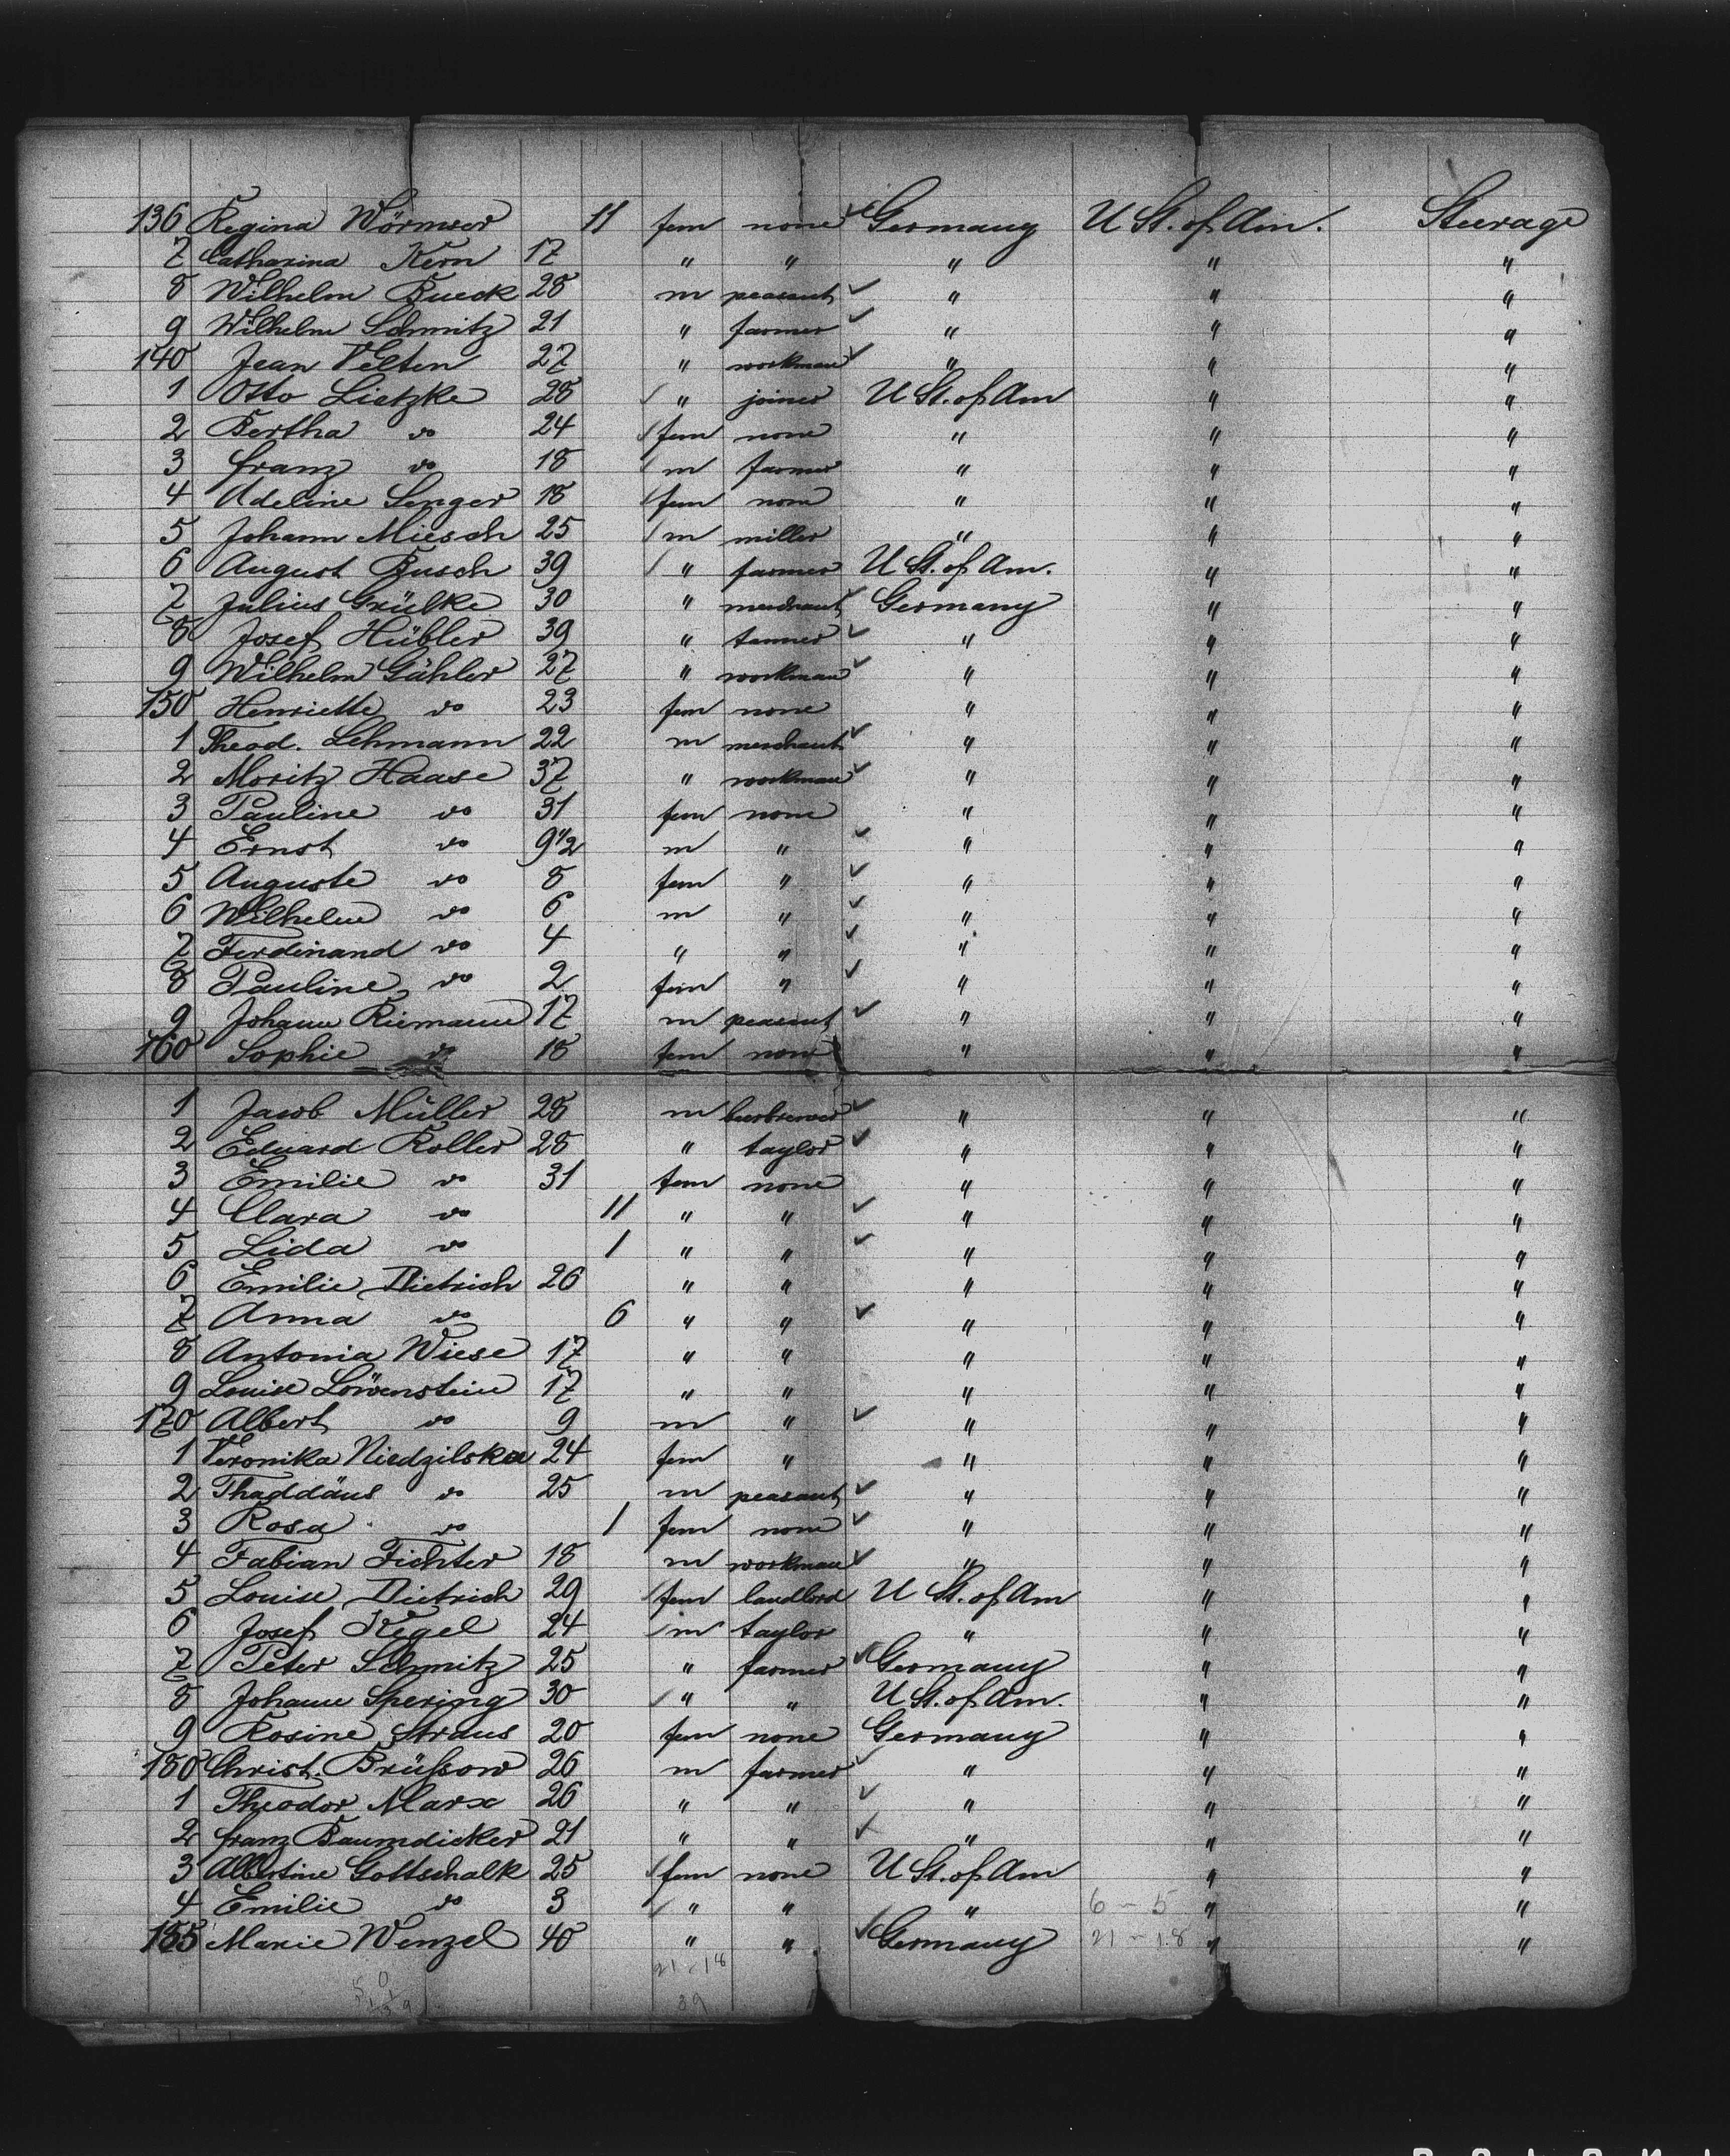 136 Regina Wörmser 11 fem none Germany U St. of Am. Steerage
7 Catharina Kern 17 " " " " "
8 Wilhelm Bueck 28 m peasant " " "
9 Wilhelm Schmitz 21 " farmer " " "
140 Jean Velten 27 " workman " " "
1 Otto Lietzke 28 " joiner U St. of Am " "
2 Bertha do 24 fem none " " "
3 Franz do 18 m farmer " " "
4 Adeline Senger 18 fem none " " "
5 Johann Miesch 25 m miller " " "
6 August Busch 39 " farmer U St. of Am. " "
7 Julius Grülke 30 " merchant Germany " "
8 Josef Hübler 39 " tanner " " "
9 Wilhelm Gähler 27 " workman " " "
150 Henriette do 23 fem none " " "
1 Theod. Lehmann 22 m merchant " " "
2 Moritz Haase 37 " workman " " "
3 Pauline do 31 fem none " " "
4 Ernst do 9 1/2 m " " " "
5 Auguste do 8 fem " " " "
6 Wilhelm do 6 m " " " "
7 Ferdinand do 4 " " " " "
8 Pauline do 2 fem " " " "
9 Johann Riemann 17 m peasant " " "
160 Sophie do 18 fem none " " "
1 Jacob Müller 28 m beerbrewer " " "
2 Eduard Roller 28 " taylor " " "
3 Emilie do 31 fem none " " "
4 Clara do 11 " " " " "
5 Lida do 1 " " " " "
6 Emilie Dietrich 26 " " " " "
7 Anna do 6 " " " " "
8 Antonia Wiese 17 " " " " "
9 Louise Löwenstein 17 " " " " "
170 Albert do 9 m " " " "
1 Veronika Niedzilska 24 fem " " " "
2 Thaddäus do 25 m peasant " " "
3 Rosa do 1 fem none " " "
4 Fabian Fichter 18 m workman " " "
5 Louise Dietrich 29 fem landlord U St. of Am " "
6 Josef Kegel 24 m taylor " " "
7 Peter Schmitz 25 " farmer Germany " "
8 Johann Spering 30 " " U St. of Am. " "
9 Rosine Straus 20 fem none Germany " "
180 Christ. Brüssow 26 m farmer " " "
1 Theodor Marx 26 " " " " "
2 Franz Baumdicker 21 " " " " "
3 Albertine Gottschalk 25 fem none U St. of Am " "
4 Emilie do 3 " " " 6 - 5 " "
185 Marie Wenzel 40 " " Germany 21 - 18 " "
21 - 18
39